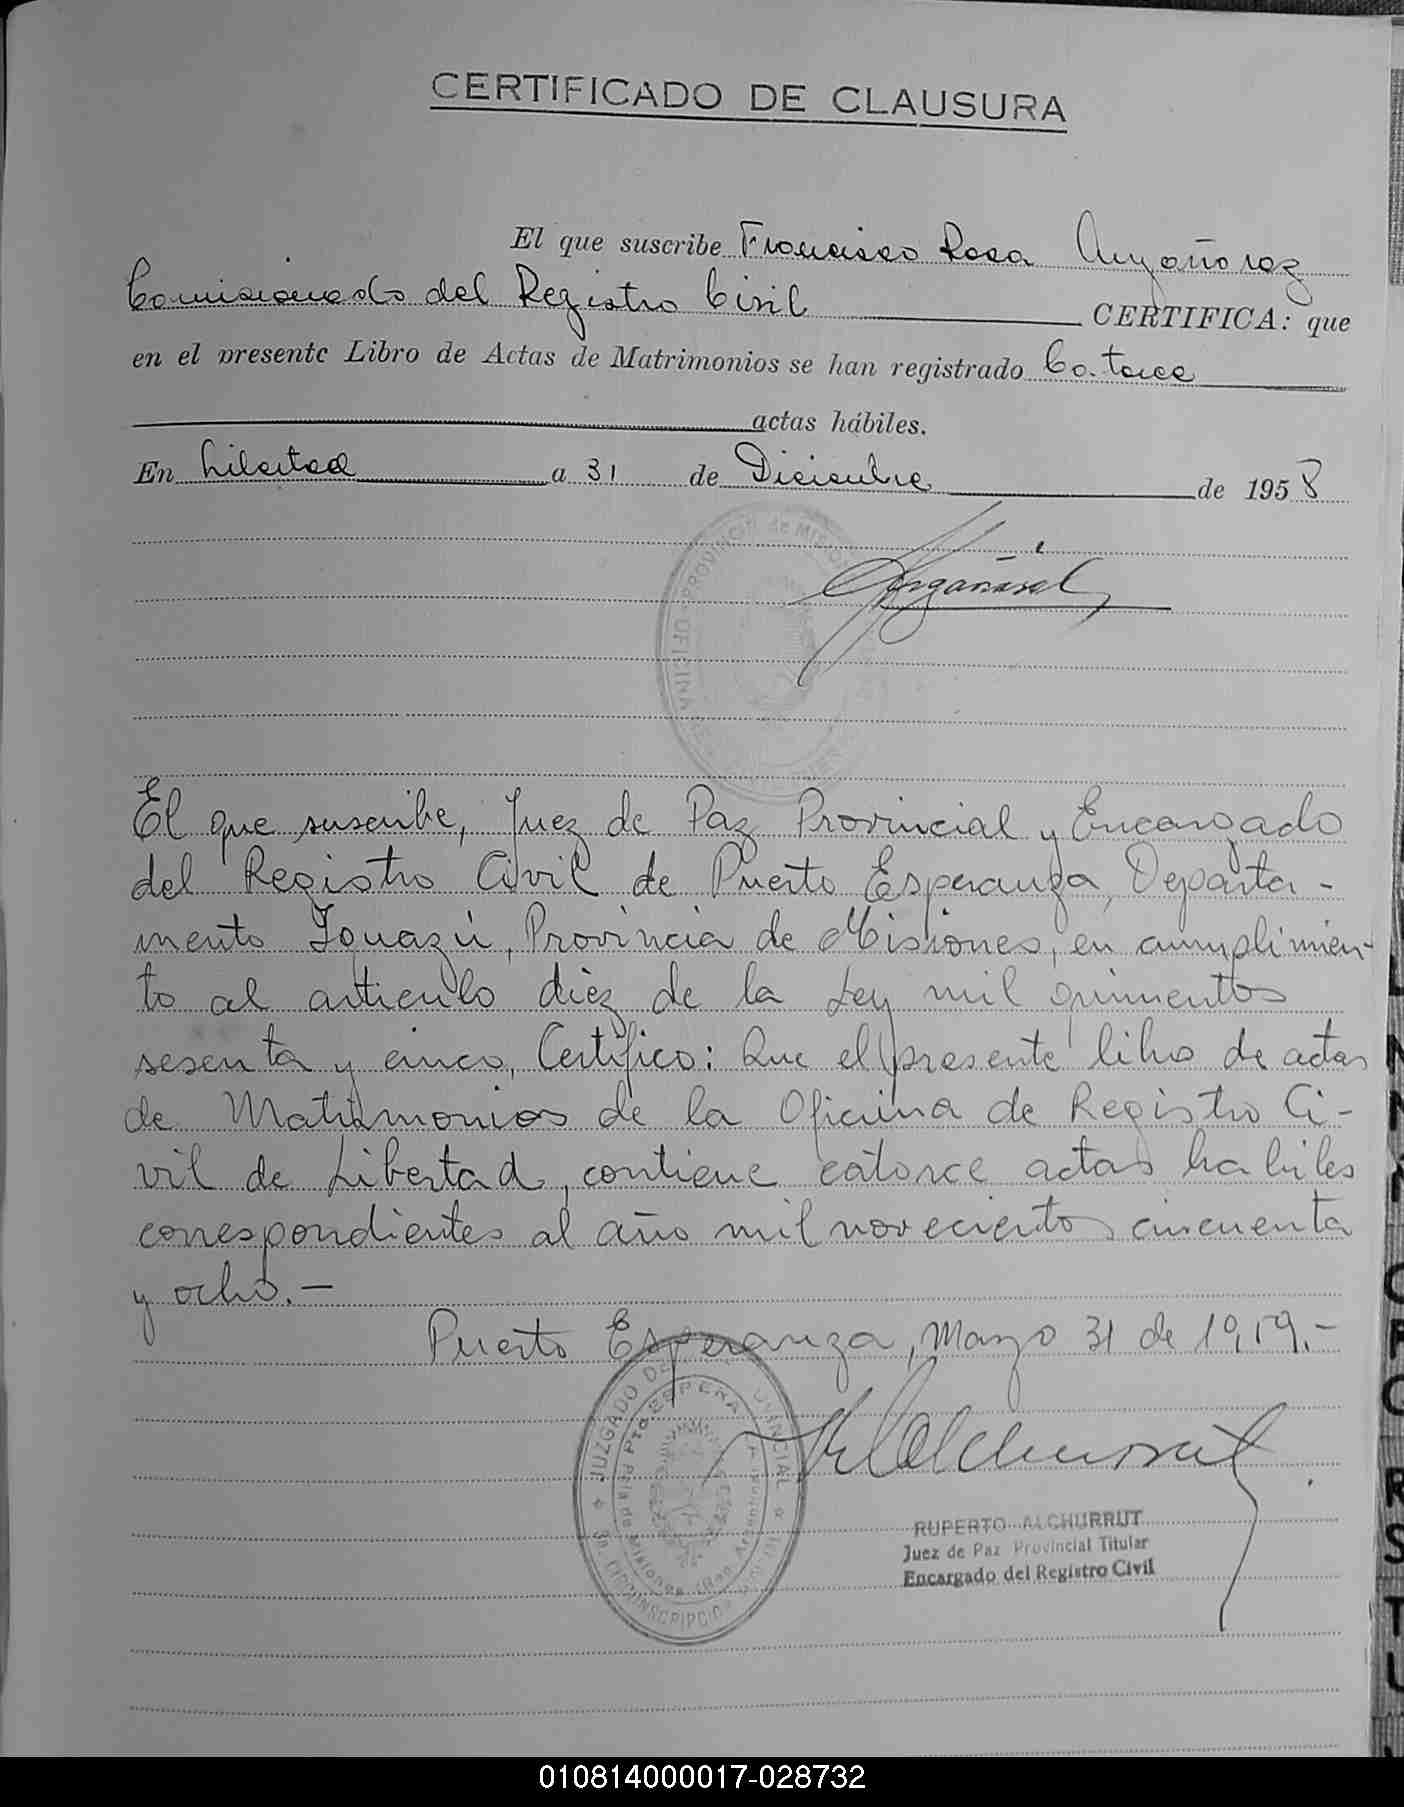 CERTIFICADO DE CLAUSURA
El que suscribe Francisco Rosa Argañaraz
Comisionado del Registro Civil CERTIFICA: que
en el presente Libro de Actas de Matrimonios se han registrado Catorce
actas hábiles.
En Libertad a 31 de Diciembre de 1958
El que suscribe, Juez de Paz Provincial y Encargado
del Registro Civil de Puerto Esperanza, Departa-
mento Iguazú, Provincia de Misiones, en cumplimien-
to al artículo diez de la Ley mil quinientos
sesenta y cinco, Certifico: Que el presente libro de actas
de Matrimonios de la Oficina de Registro Ci-
vil de Libertad, contiene catorce actas habiles
correspondientes al año mil novecientos cincuenta
y ocho.-
Puerto Esperanza, Marzo 31 de 1959.-
RUPERTO ALCHURRUT
Juez de Paz Provincial Titular
Encargado del Registro Civil
010814000017-028732